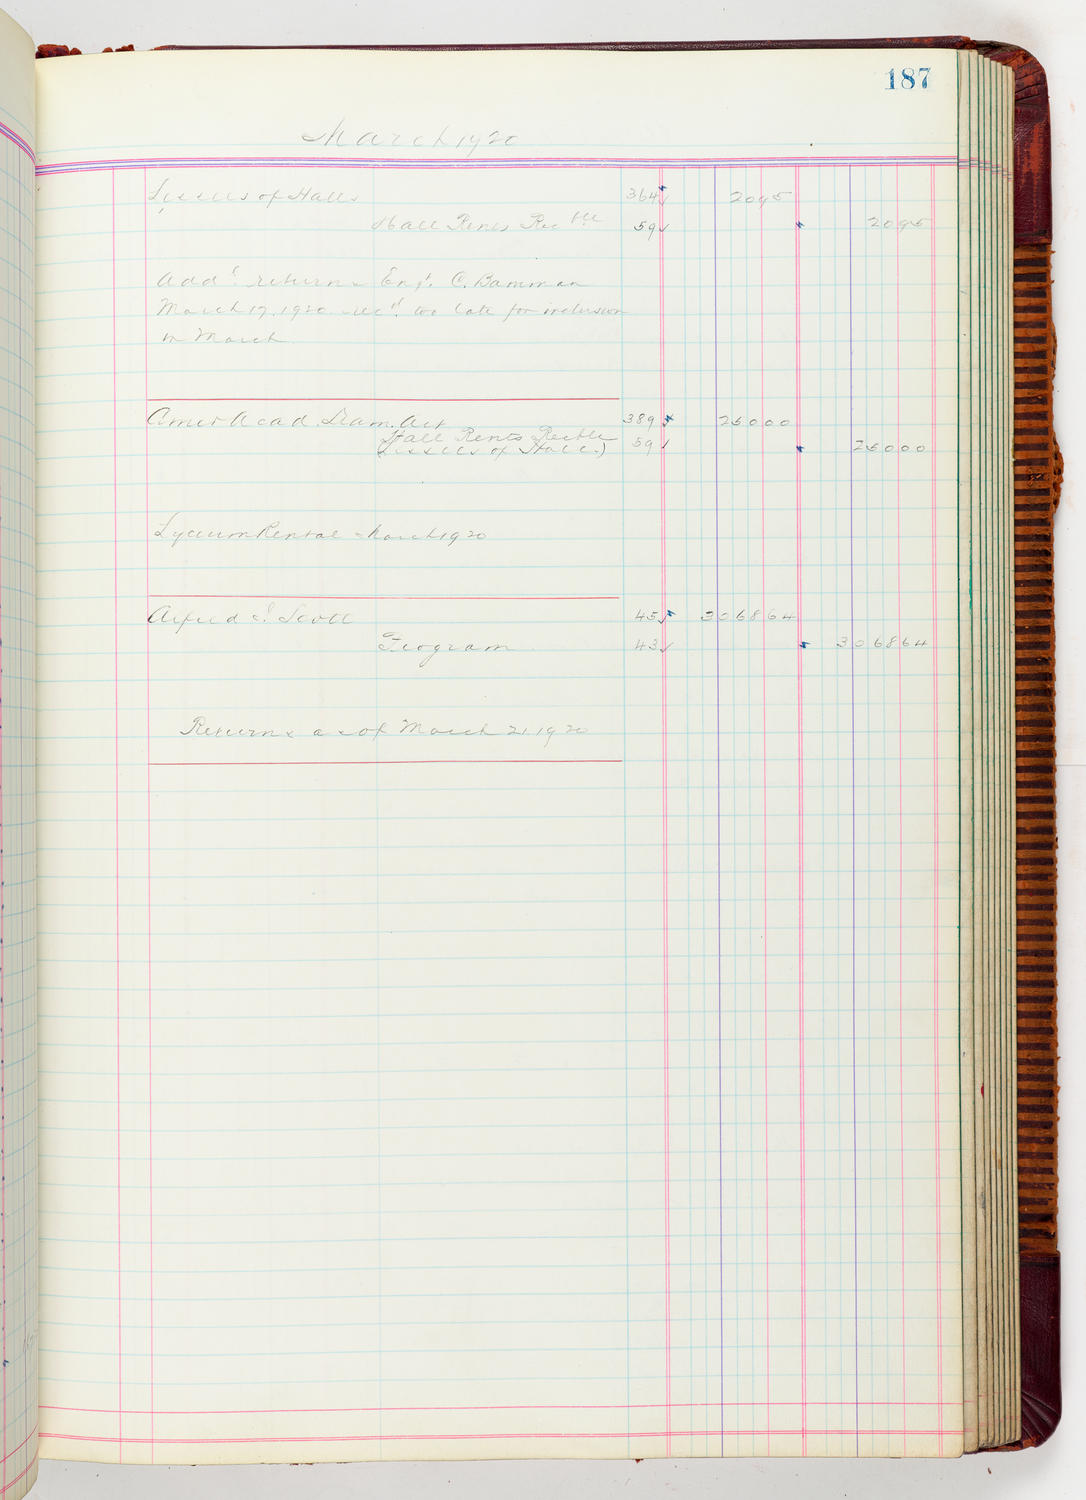 187
March 1920
Lessees of Halls 364 ✓ 2095
Hall Rents Rec ble 59 ✓ 2095
Add'l returns Eng't. C. Bamman
March 17, 1920 rec'd. too late for inclusion
in March
Amer Acad. Dram. Art 389 25000
Hall Rents Recble 59 ✓ 25000
(Lessees of Halls)
Lyceum Rental March 1920
Alfred Scott 45 ✓ 306864
Program 43 ✓ 306864
Returns as of March 21, 1920